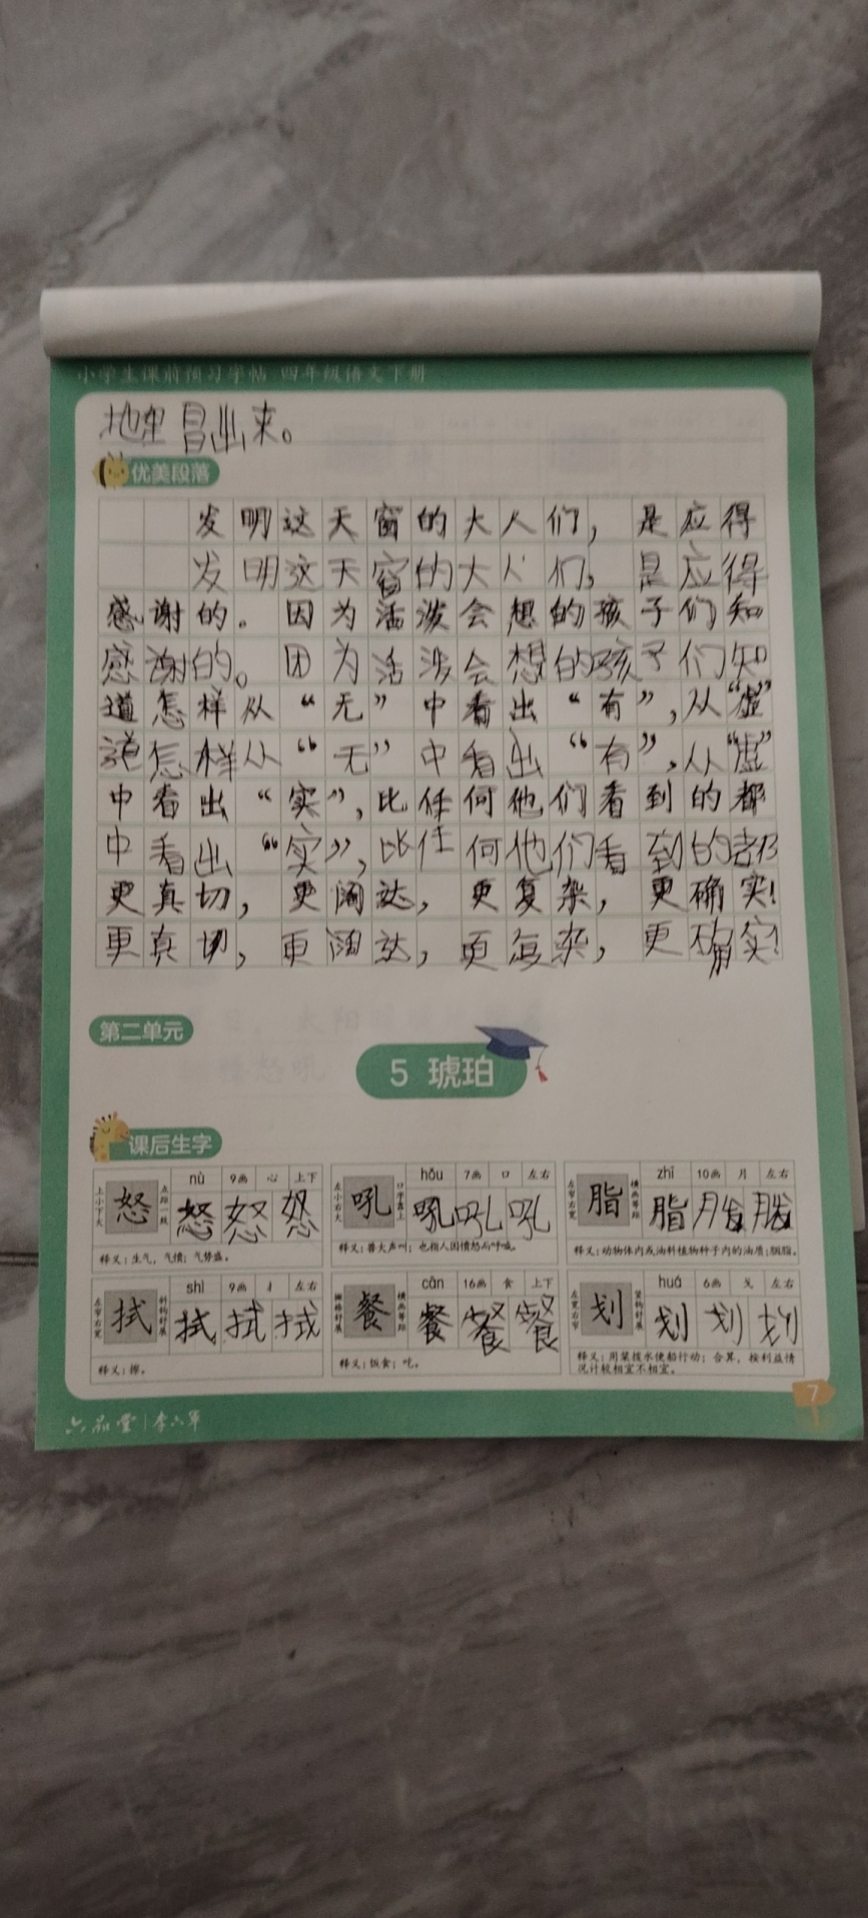 小学生课前预习字帖 四年级语文下册
地里冒出来。
优美段落
发明这天窗的大人们，是应得
发明这天窗的大人们，是应得
感谢的。因为活泼会想的孩子们知
感谢的。因为活泼会想的孩子们知
道怎样从“无”中看出“有”，从“虚”
道怎样从“无”中看出“有”，从“虚”
中看出“实”，比任何他们看到的都
中看出“实”，比任何他们看到的都
更真切，更阔达，更复杂，更确实！
更真切，更阔达，更复杂，更确实！
第二单元
5 琥珀
课后生字
nù 9画 心 上下
上小下大 怒 点距一致 怒怒怒
释义：生气，气愤；气势盛。
hǒu 7画 口 左右
左小右大 吼 口字靠上 吼吼吼
释义：兽大声叫；也指人因愤怒而呼喊。
zhī 10画 月 左右
左窄右宽 脂 横画等距 脂脂脂
释义：动物体内或油料植物种子内的油质；胭脂。
shì 9画 扌 左右
左窄右宽 拭 斜钩舒展 拭拭拭
释义：擦。
cān 16画 食 上下
撇捺舒展 餐 横画等距 餐餐餐
释义：饭食；吃。
huá 6画 戈 左右
左宽右窄 划 竖钩舒展 划划划
释义：用桨拨水使船行动；合算，按利益情
况计较相宜不相宜。
7
六品堂 | 李六军